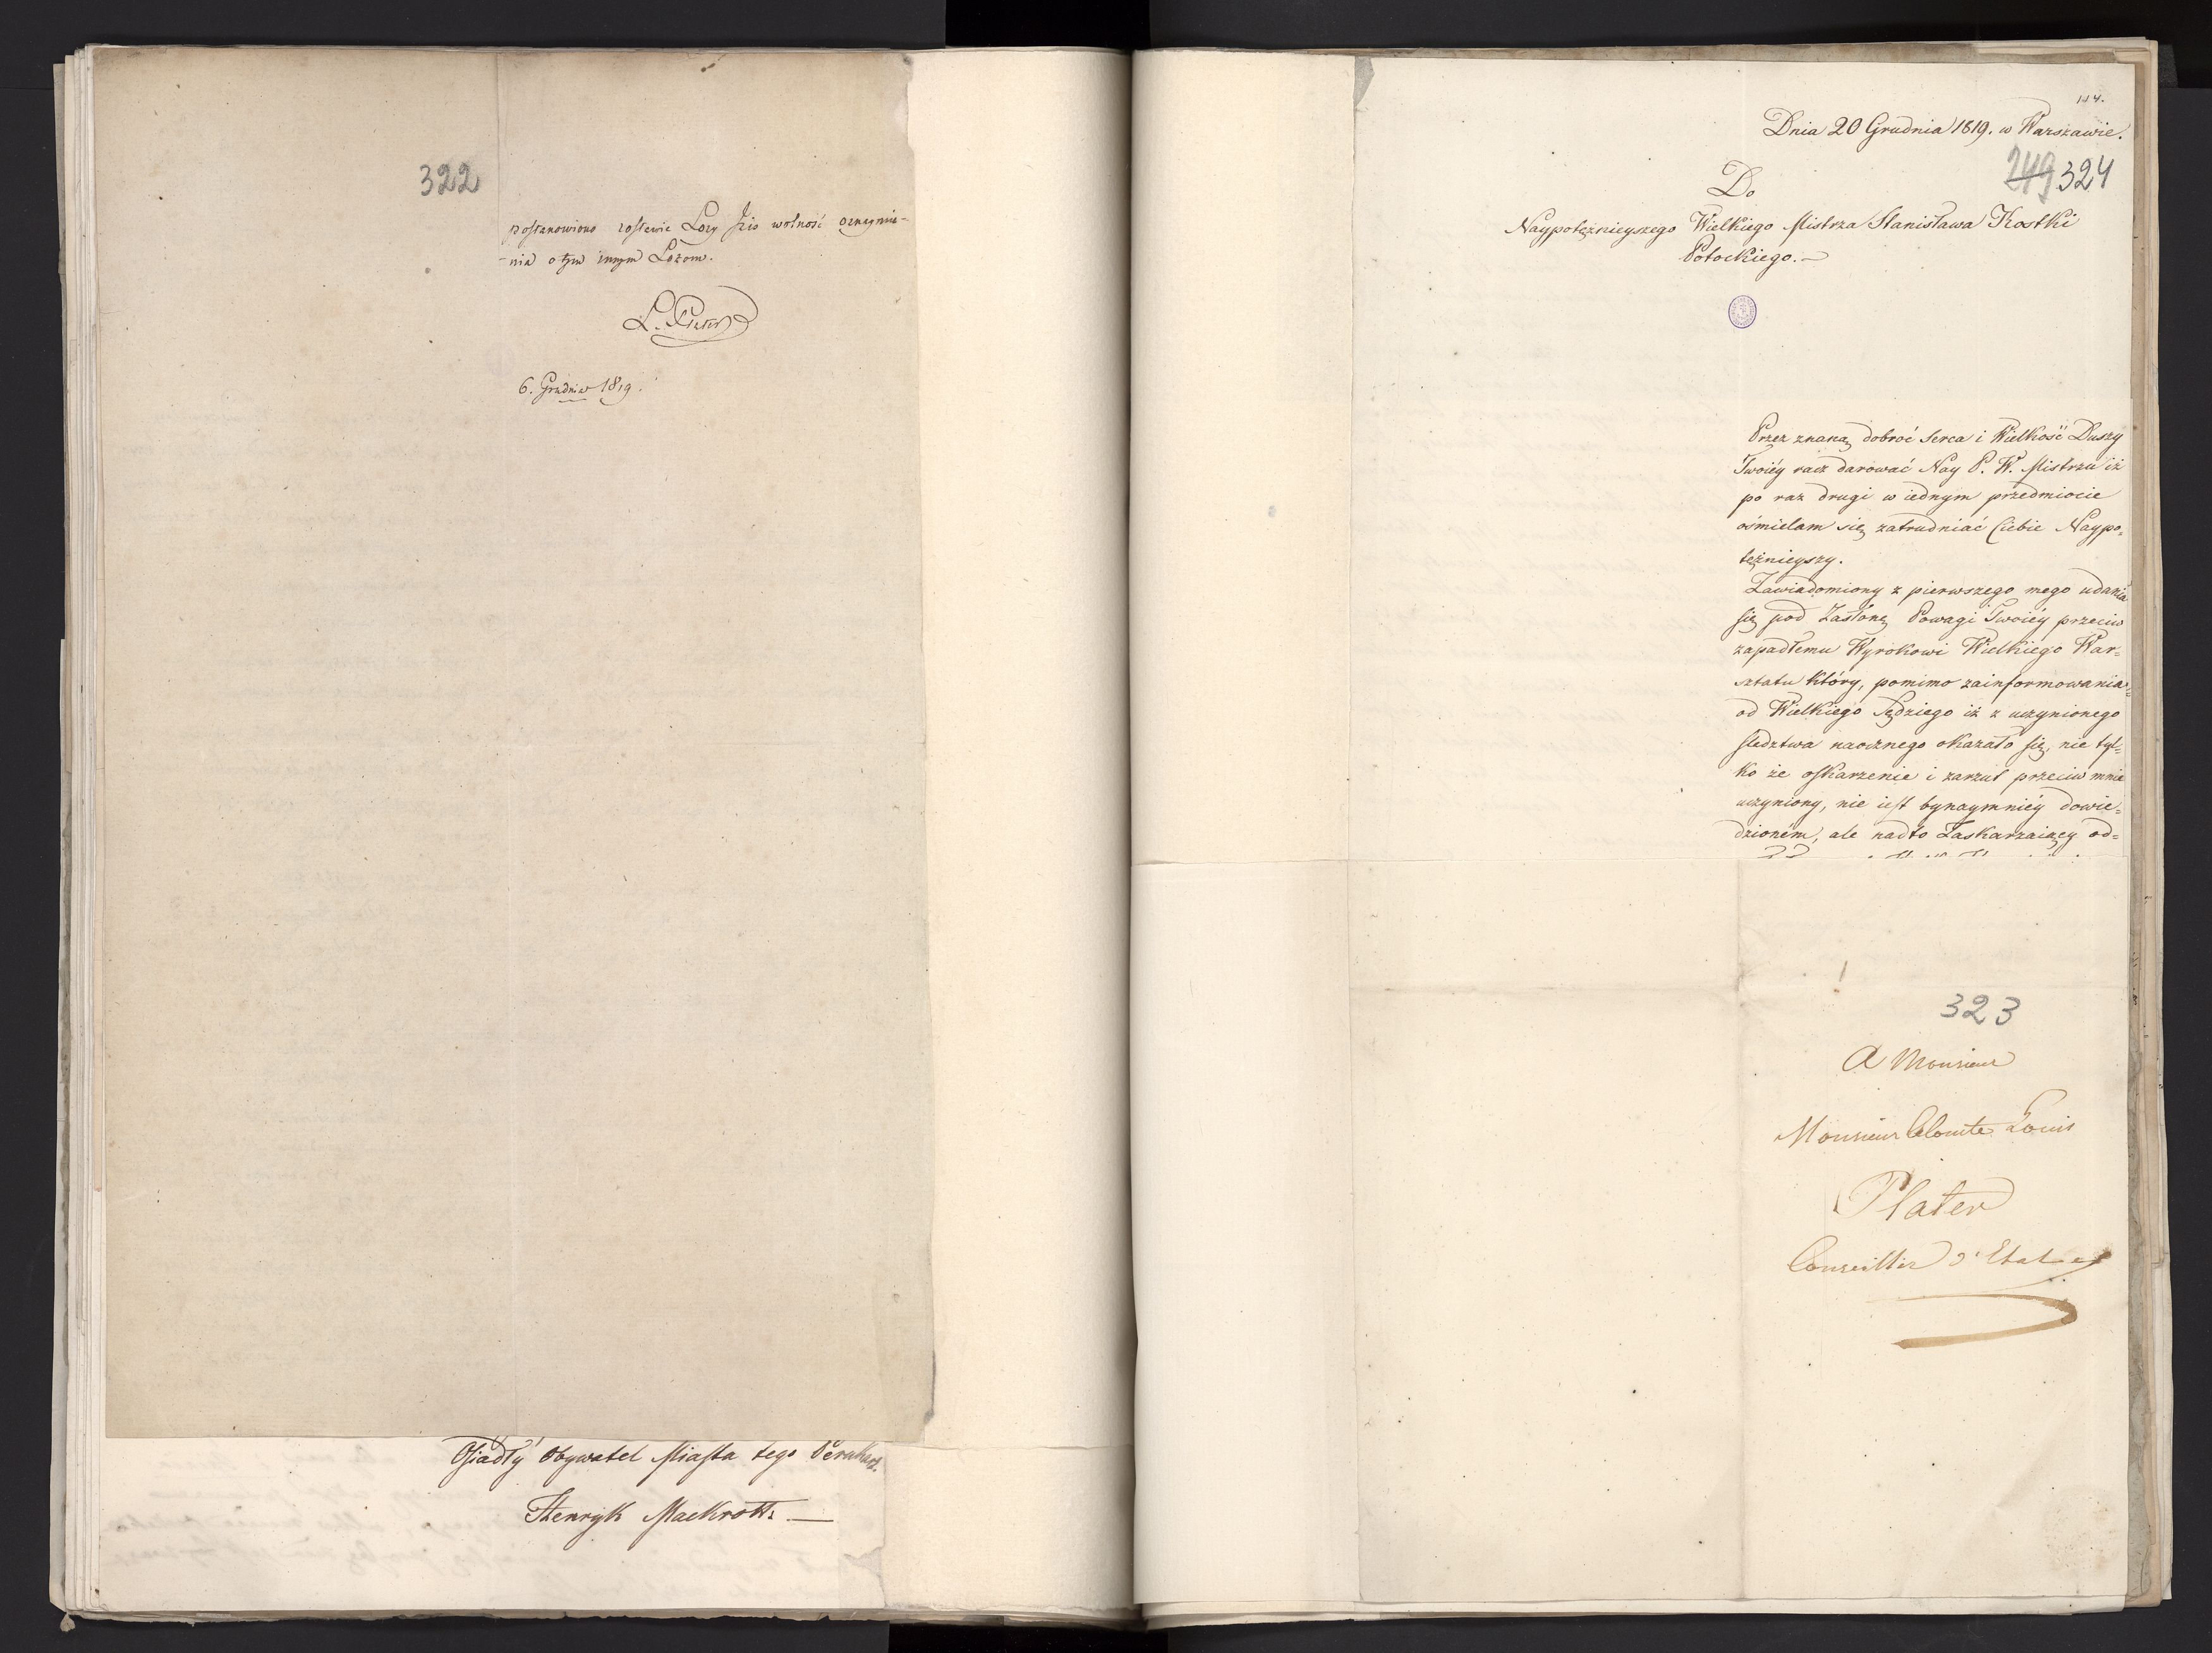 322
postanowiono zostawić Loży wolność oznaymie-
-nia o tym innym Lożom.
L. Plater
6. Grudnia 1819.
Osiadły Obywatel Miasta tego
Henryk Mackrott. —
114.
Dnia 20 Grudnia 1819. w Warszawie.
249 324
Do
Naypotężnieyszego Wielkiego Mistrza Stanisława Kostki
Potockiego. —
Przez znaną dobroć serca i Wielkość Duszy
Twoiéy racz darować Nay P. W. Mistrzu iż
po raz drugi w iednym przedmiocie
ośmielam się zatrudniać Ciebie Naypo=
tężnieyszy.
Zawiadomiony z pierwszego mego udania
się pod Zasłonę Powagi Twoiéy przeciw
zapadłemu Wyrokowi Wielkiego War=
sztatu który, pomimo zainformowania
od Wielkiego Sędziego iż z uczynionego
sledztwa naocznego okazało się, nie tyl=
ko że oskarzenie i zarzut przeciw mnie
uczyniony, nie iest bynaymniéy dowie=
dzioném, ale nadto Zaskarzaiący od=
323
A Monsieur
Monsieur le Comte Louis
Plater
Conseiller d'Etat